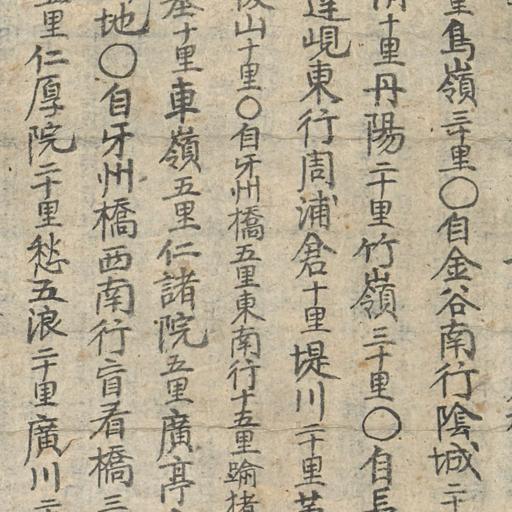 里鳥嶺三十里〇自金谷南行陰城二十
十里丹陽二十里竹嶺三十里〇自長
峴東行周浦倉十里堤川二十里
山十里〇自牙州橋五里東南行十五里踰
十里車嶺五里仁諸院五里廣亭
地〇自牙州橋西南行盲看橋三
里仁厚院二十里愁五浪二十里廣川二